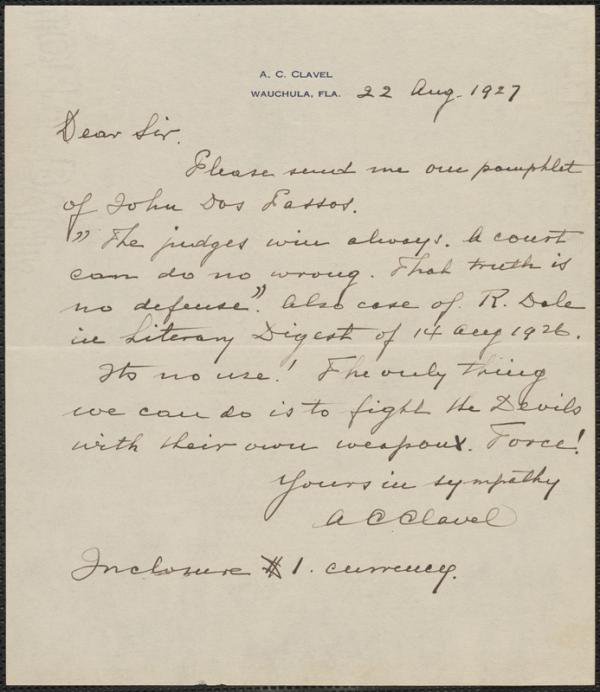 A. C. CLAVEL
WAUCHULA, FLA. 22 Aug. 1927
Dear Sir.
Please send me one pamphlet
of John Dos Passos.
"The judges win always. A court
can do no wrong. That truth is
no defense". Also case of R. Dale
in Literary Digest of 14 Aug 1926.
Its no use! The only thing
we can do is to fight the Devils
with their own weapon. Force!
Yours in sympathy
A C Clavel
Inclosure $1. currency.